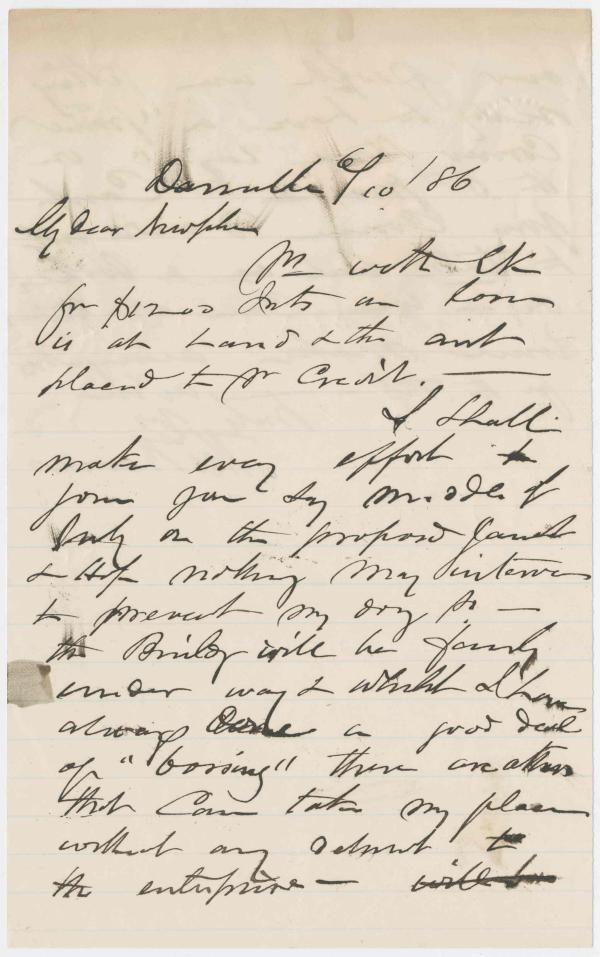 Danville 6/10 '86
My dear Nephew
Yr with Ck
for $12.00 Ints on Loan
is at hand & the amt
placed to yr Credit. —
I Shall
make every effort to
join you by middle of
July on the proposed Jaunt
& Hope nothing may interven
to prevent my doing so —
the Building will be fairly
under way & whilst I have
always done a good deal
of "bossing" there are others
that Can take my place
without any detriment to
the enterprise — will be